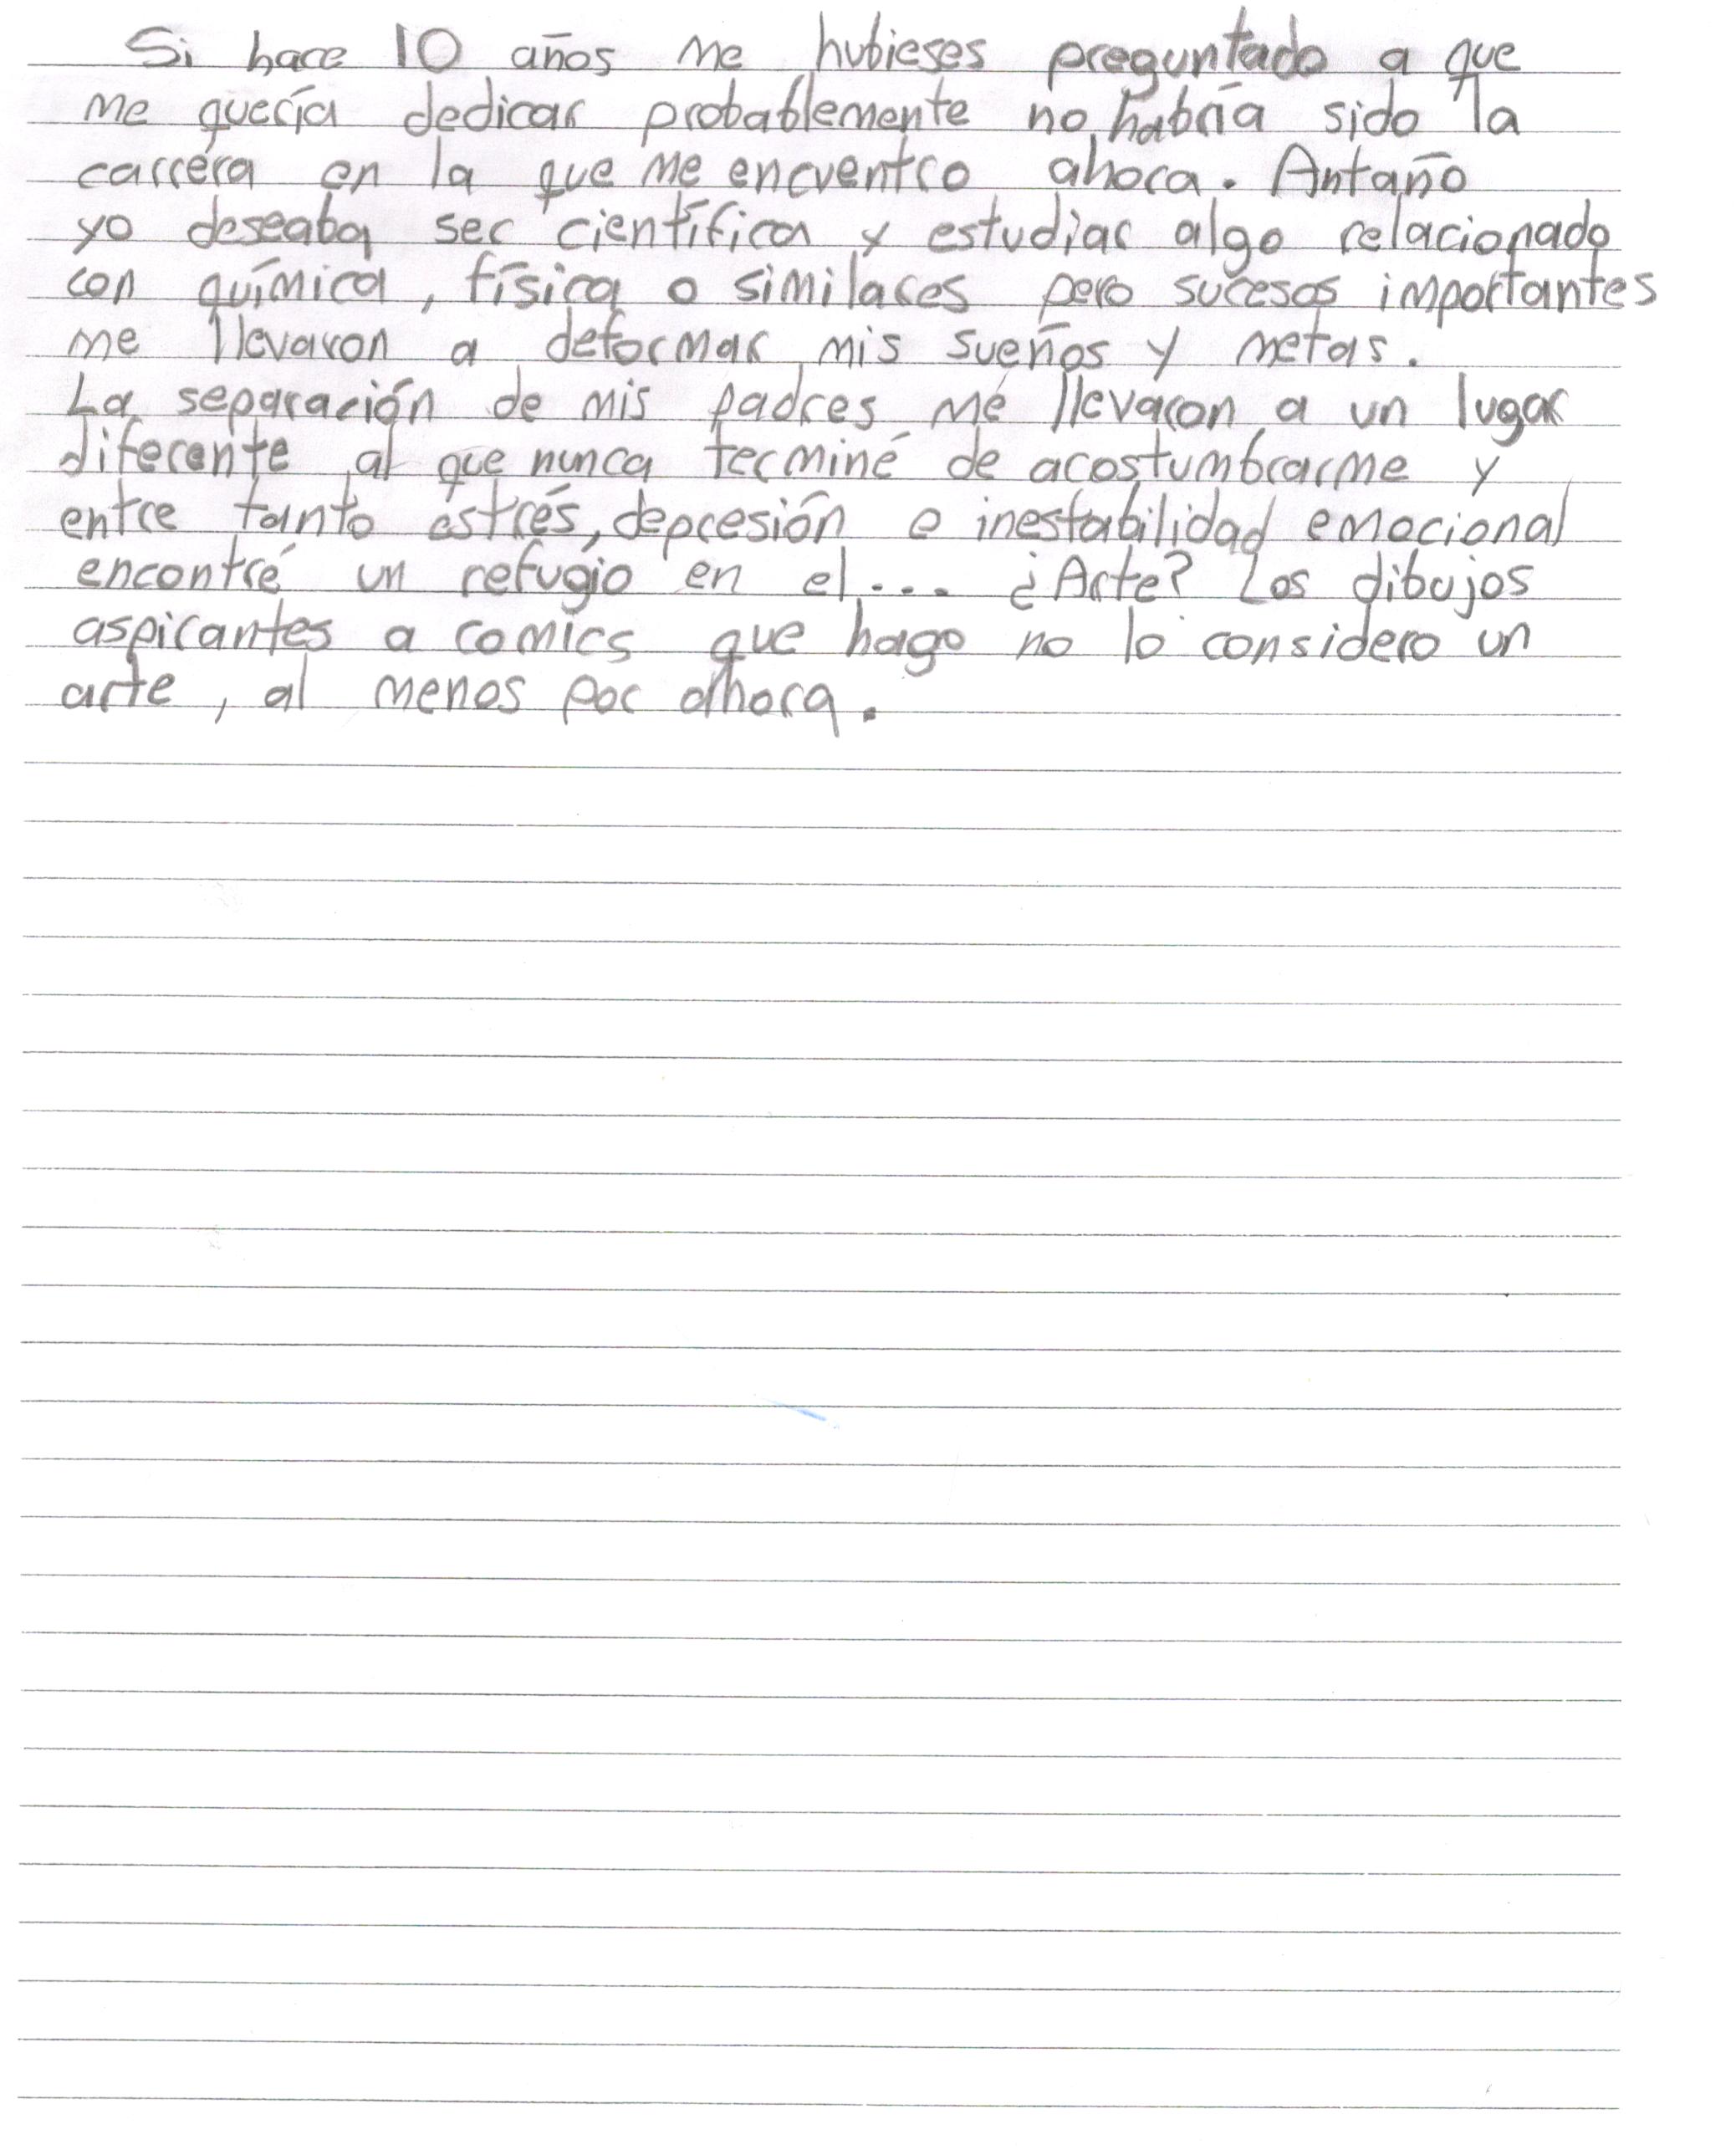 Si hace 10 años me hubieses preguntado a que
me quería dedicar probablemente no habría sido la
carrera en la que me encuentro ahora. Antaño
yo deseaba ser científica y estudiar algo relacionado
con química, física o similares pero sucesos importantes
me llevaron a deformar mis sueños y metas.
La separación de mis padres me llevaron a un lugar
diferente al que nunca terminé de acostumbrarme y
entre tanto estrés, depresión e inestabilidad emocional
encontré un refugio en el... ¿Arte? Los dibujos
aspirantes a comics que hago no lo considero un
arte, al menos por ahora.